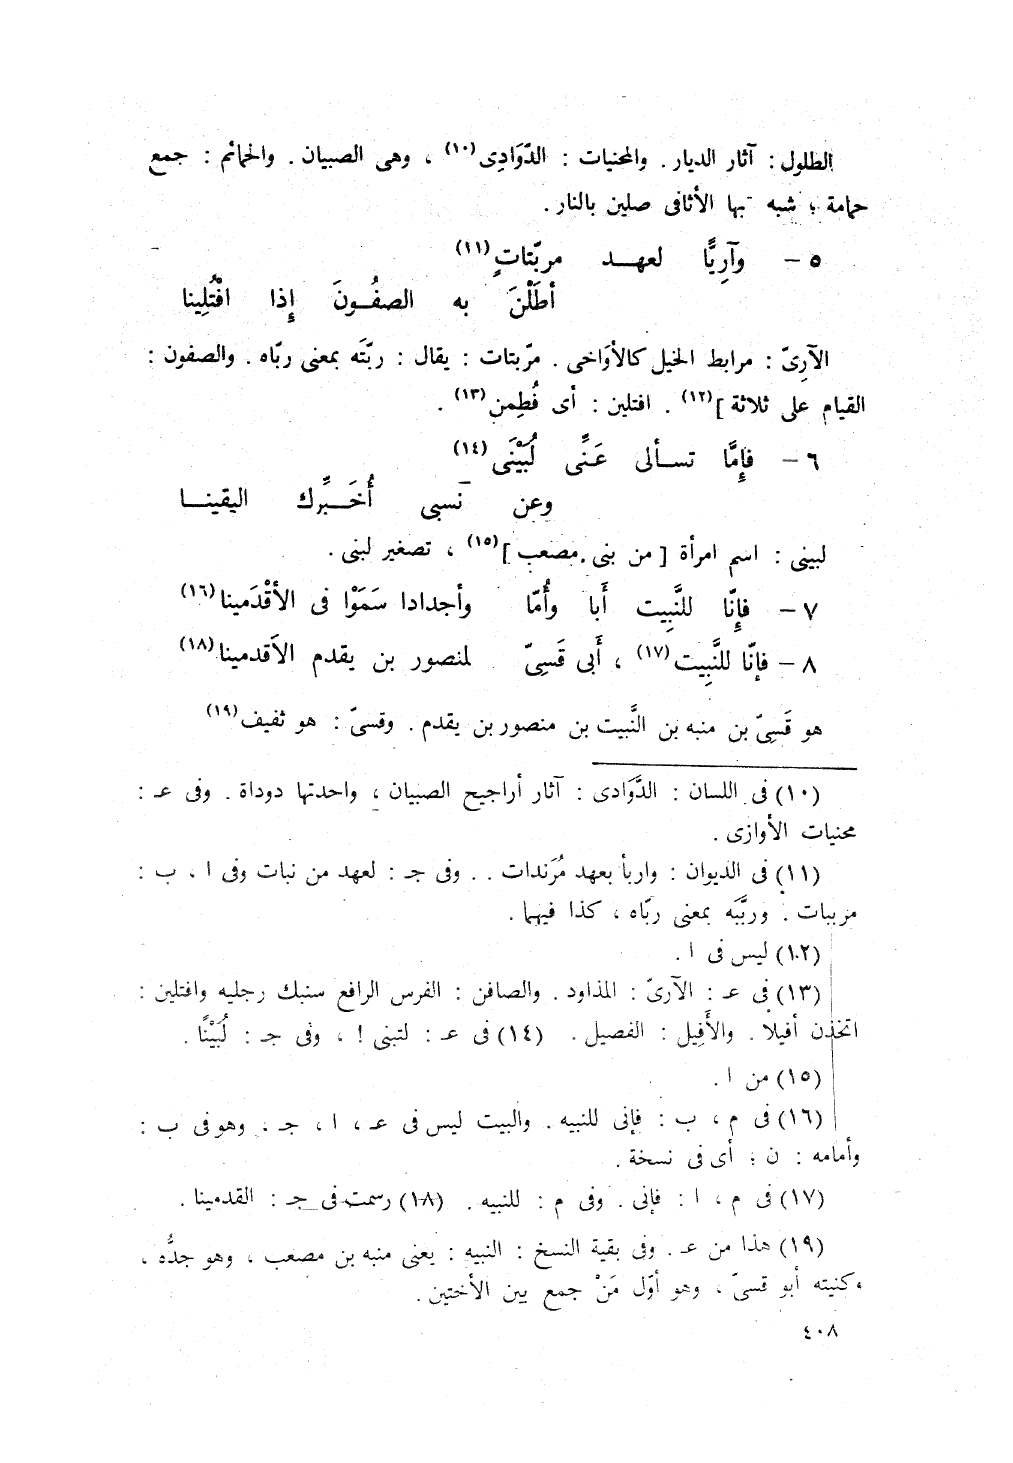 الطلول : آثار الديار . والمحنيات : الدّوَادِى(١٠) ، وهى الصبيان . والحمائم : جمع
حمامة ؛ شبه بها الأثافى صلين بالنار .
٥ – وآرِيًّا لعهد مربّتاتٍ(١١)
أطَلْنَ به الصفُونَ إِذا افْتُلِينا
الآرِىّ : مرابط الخيل كالأوَاخى . مرّبتات : يقال : ربّتَه بمعنى ربّاه . والصفون :
القيام على ثلاثة ](١٢) . افتلين : أى فُطِمن(١٣) .
٦ – فإِمَّا تسألى عَنِّى لُبَيْنَى(١٤)
وعن نسبى أُخَبِّرك اليقينا
لبينى : اسم امرأة [ من بنى مصعب ](١٥) ، تصغير لبنى .
٧ – فإِنّا للنَّبِيت أَبا وأُمّا وأجدادا سَمَوْا فى الأقْدَمينا(١٦)
٨ – فإنّا للنَّبِيت(١٧) ، أَبى قَسِىّ لمنصور بن يقدم الأقدمينا(١٨)
هو قَسِىّ بن منبه بن النَّبيت بن منصور بن يقدم . وقسىّ : هو ثقيف(١٩)
(١٠) فى اللسان : الدَّوَادى : آثار أراجيح الصبيان ، واحدتها دوداة . وفى عـ :
محنيات الأوازى .
(١١) فى الديوان : واربأ بعهد مُرَندات . . وفى جـ : لعهد من نبات وفى ا ، ب :
مربيات . وربَّبَه بمعنى ربّاه ، كذا فيهما .
(١٢) ليس فى ا .
(١٣) فى عـ : الآرىّ : المذاود . والصافن : الفرس الرافع سنبك رجليه وافتلين :
اتخذن أفيلا . والأَفِيل : الفصيل . (١٤) فى عـ : لتبنى ! ، وفى جـ : لُبَيْنًا .
(١٥) من ا .
(١٦) فى م ، ب : فإنى للنبيه . والبيت ليس فى عـ ، ا ، جـ ، وهو فى ب :
وأمامه : ن ؛ أى فى نسخة .
(١٧) فى م ، ا : فإنى . وفى م : للنبيه . (١٨) رسمت فى جـ : القدمينا .
(١٩) هذا من عـ . وفى بقية النسخ : النبيه : يعنى منبه بن مصعب ، وهو جدُّه ،
وكنيته أبو قسىّ ، وهو أوّل مَنْ جمع بين الأختين .
٤٠٨